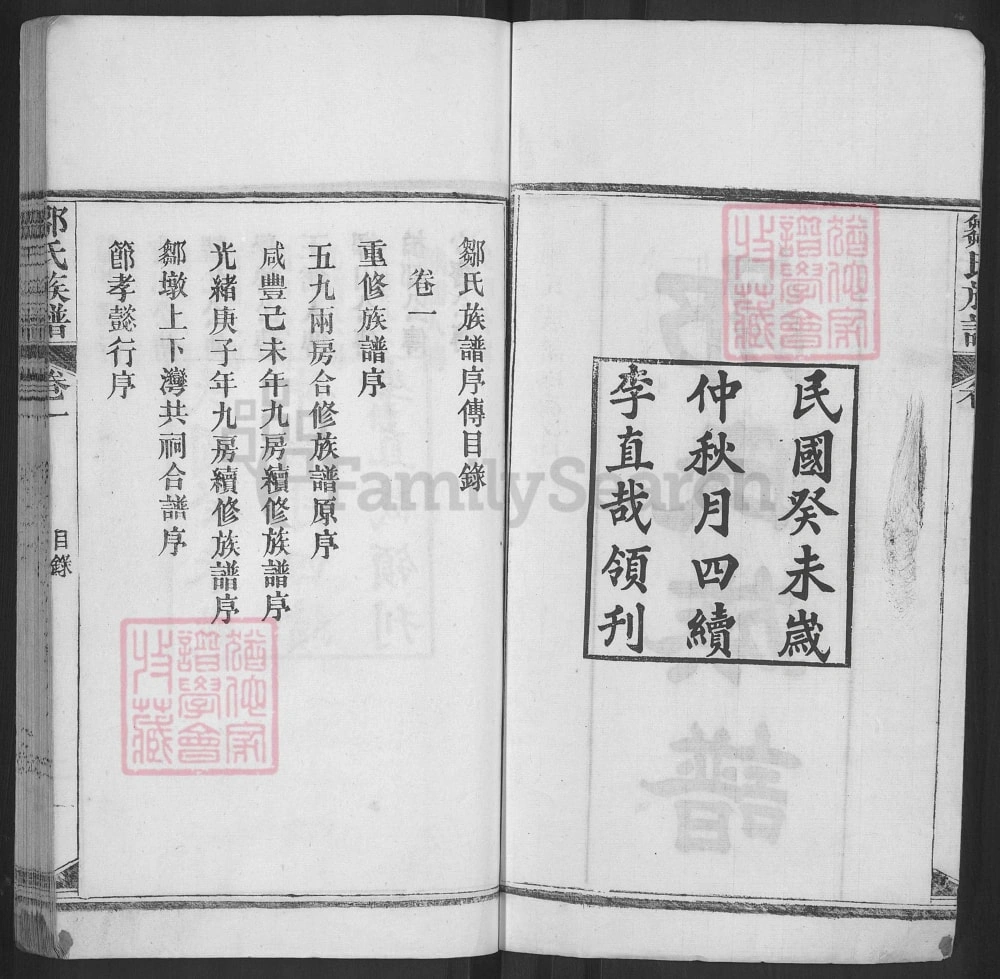 鄒氏族譜
民國癸未歲
仲秋月四續
李直哉領刊
鄒氏族譜序傳目錄
卷一
重修族譜序
五九兩房合修族譜原序
咸豐己未年九房續修族譜序
光緒庚子年九房續修族譜序
鄒墩上下灣共祠合譜序
節孝懿行序
鄒氏族譜 卷一 目錄
譜學會
收藏
譜學會
收藏
FamilySearch